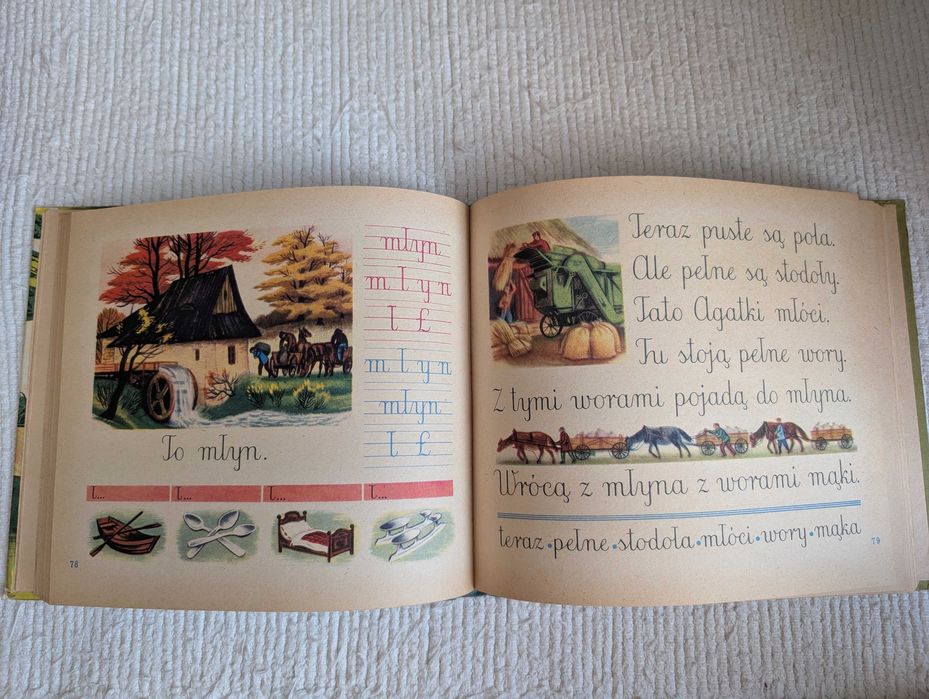 młyn
m ł y n
ł Ł
m ł y n
młyn
ł Ł
To młyn.
ł... ł... ł... ł...
78
Teraz puste są pola.
Ale pełne są stodoły.
Tato Agatki młóci.
Tu stoją pełne wory.
Z tymi worami pojadą do młyna.
Wrócą z młyna z worami mąki.
teraz • pełne • stodoła • młóci • wory • mąka
79